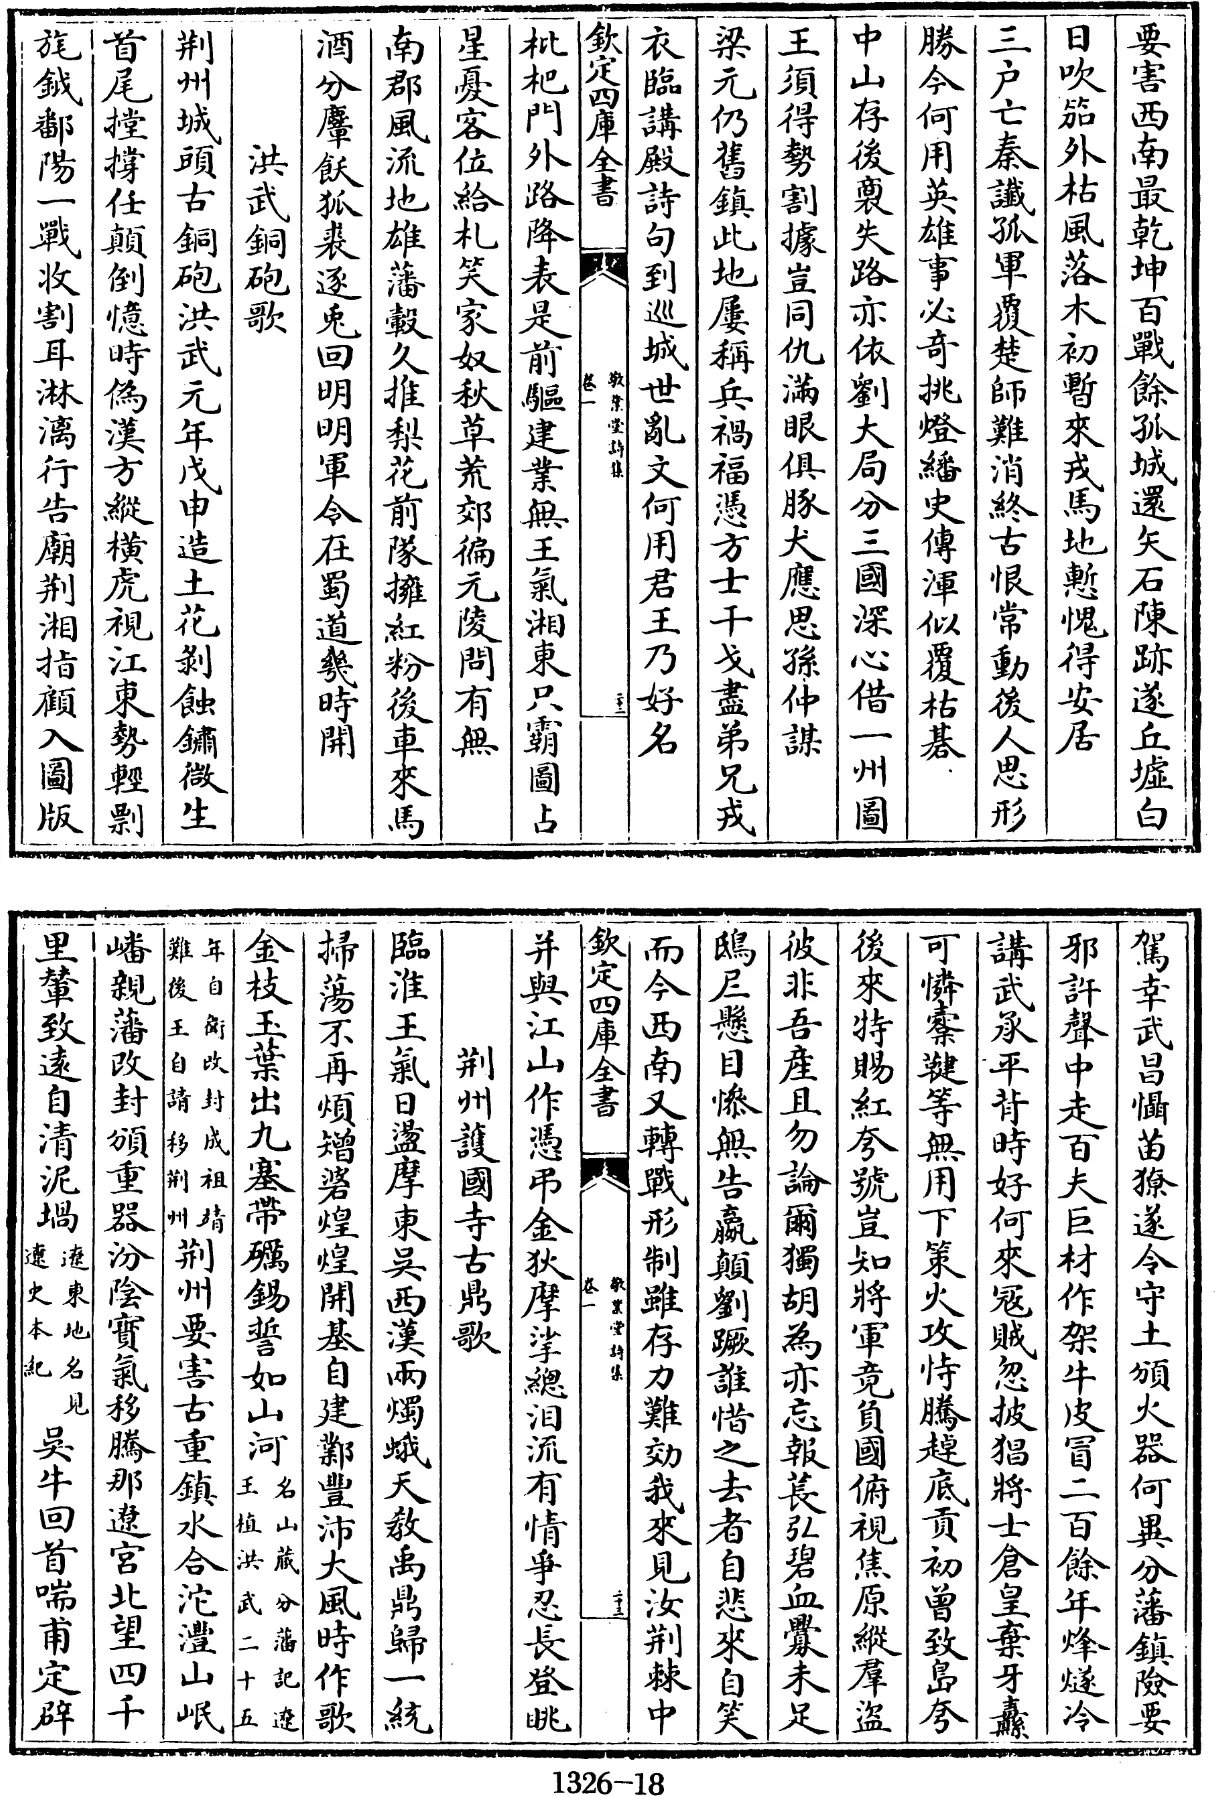 要害西南最乾坤百戰餘孤城還矢石陳跡遂丘墟白
日吹笳外枯風落木初暫來戎馬地慙愧得安居
三户亡秦讖孤軍覆楚師難消終古恨常動後人思形
勝今何用英雄事必奇挑燈繙史傳渾似覆枯碁
中山存後裔失路亦依劉大局分三國深心借一州圖
王須得勢割據豈同仇滿眼俱豚犬應思孫仲謀
梁元仍舊鎮此地屢稱兵禍福憑方士干戈盡弟兄戎
衣臨講殿詩句到巡城世亂文何用君王乃好名
欽定四庫全書
敬業堂詩集
卷一
二十二
枇杷門外路降表是前驅建業無王氣湘東只霸圖占
星憂客位給札笑家奴秋草荒郊徧元陵問有無
南郡風流地雄藩轂久推梨花前隊擁紅粉後車來馬
酒分麞飫狐裘逐兎回明明軍令在蜀道幾時開
洪武銅砲歌
荆州城頭古銅砲洪武元年戊申造土花剝蝕鏽微生
首尾撑撐任顛倒憶時偽漢方縱橫虎視江東勢輕剽
旄鉞鄱陽一戰收割耳淋漓行告廟荆湘指顧入圖版
駕幸武昌懾苗獠遂令守土頒火器何異分藩鎮險要
邪許聲中走百夫巨材作架牛皮冒二百餘年烽燧冷
講武承平背時好何來冦賊忽披猖將士倉皇棄牙纛
可憐櫜鞬等無用下策火攻恃騰趠底貢初曾致島夸
後來特賜紅夸號豈知將軍竟負國俯視焦原縱羣盜
彼非吾産且勿論爾獨胡為亦忘報萇弘碧血釁未足
鴟㞐懸目慘無告嬴顛劉蹶誰惜之去者自悲來自笑
而今西南又轉戰形制雖存力難効我來見汝荆棘中
欽定四庫全書
敬業堂詩集
卷一
二十三
并與江山作憑弔金狄摩挲總泪流有情爭忍長登眺
荆州護國寺古鼎歌
臨淮王氣日盪摩東吳西漢兩燭蛾天教禹鼎歸一統
掃蕩不再煩矰碆煌煌開基自建鄴豐沛大風時作歌
金枝玉葉出九塞帶礪錫誓如山河名山藏分藩記遼王植洪武二十五
年自衛改封成祖靖難後王自請移荆州荆州要害古重鎮水合沱灃山岷
嶓親藩改封頒重器汾陰寶氣移騰那遼宮北望四千
里輦致遠自清泥堝遼東地名見遼史本紀吳牛回首喘甫定辟